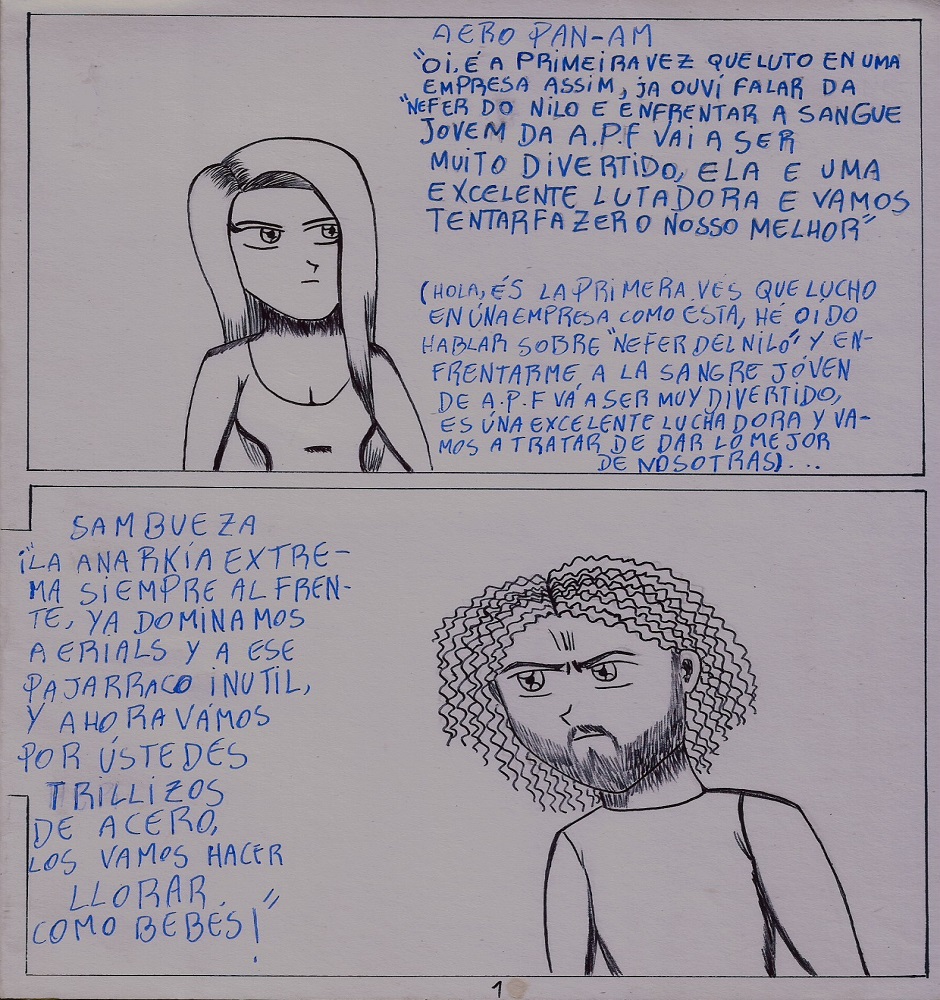 AERO PAN-AM
"OI, É A PRIMEIRA VEZ QUE LUTO EN UMA
EMPRESA ASSIM, JA OUVI FALAR DA
"NEFER DO NILO E ENFRENTAR A SANGUE
JOVEM DA A.P.F VAI A SER
MUITO DIVERTIDO, ELA E UMA
EXCELENTE LUTADORA E VAMOS
TENTAR FAZER O NOSSO MELHOR"
(HOLA, ÉS LA PRIMERA VES QUE LÚCHO
EN ÚNA EMPRESA COMO ESTA, HÉ OIDO
HABLAR SOBRE "NEFER DEL NILO" Y EN-
FRENTARME A LA SANGRE JÓVEN
DE A.P.F VÁ A SER MUY DIVERTIDO,
ES ÚNA EXCELENTE LUCHADORA Y VA-
MOS A TRATAR DE DAR LO MEJOR
DE NOSOTRAS)...
SAMBUEZA
¡"LA ANARKÍA EXTRE-
MA SIEMPRE AL FREN-
TE, YA DOMINAMOS
AERIALS Y A ESE
PAJARRACO INUTIL,
Y AHORA VÁMOS
POR ÚSTEDES
TRILLIZOS
DE ACERO,
LOS VAMOS HACER
LLORAR
COMO BEBÉS!"
1